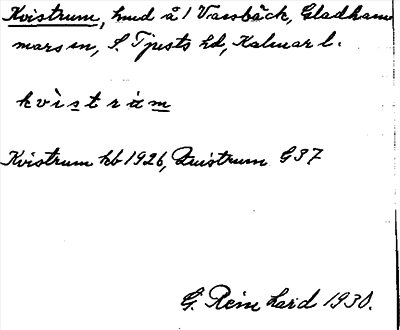 Kvistrum, hmd å 1 Vassbäck, Gladham
mars sn, S. Tjusts hd, Kalmar l.
kvìstràm
Kvistrum kb 1926, Quistrum G37
G. Reinhard 1930.